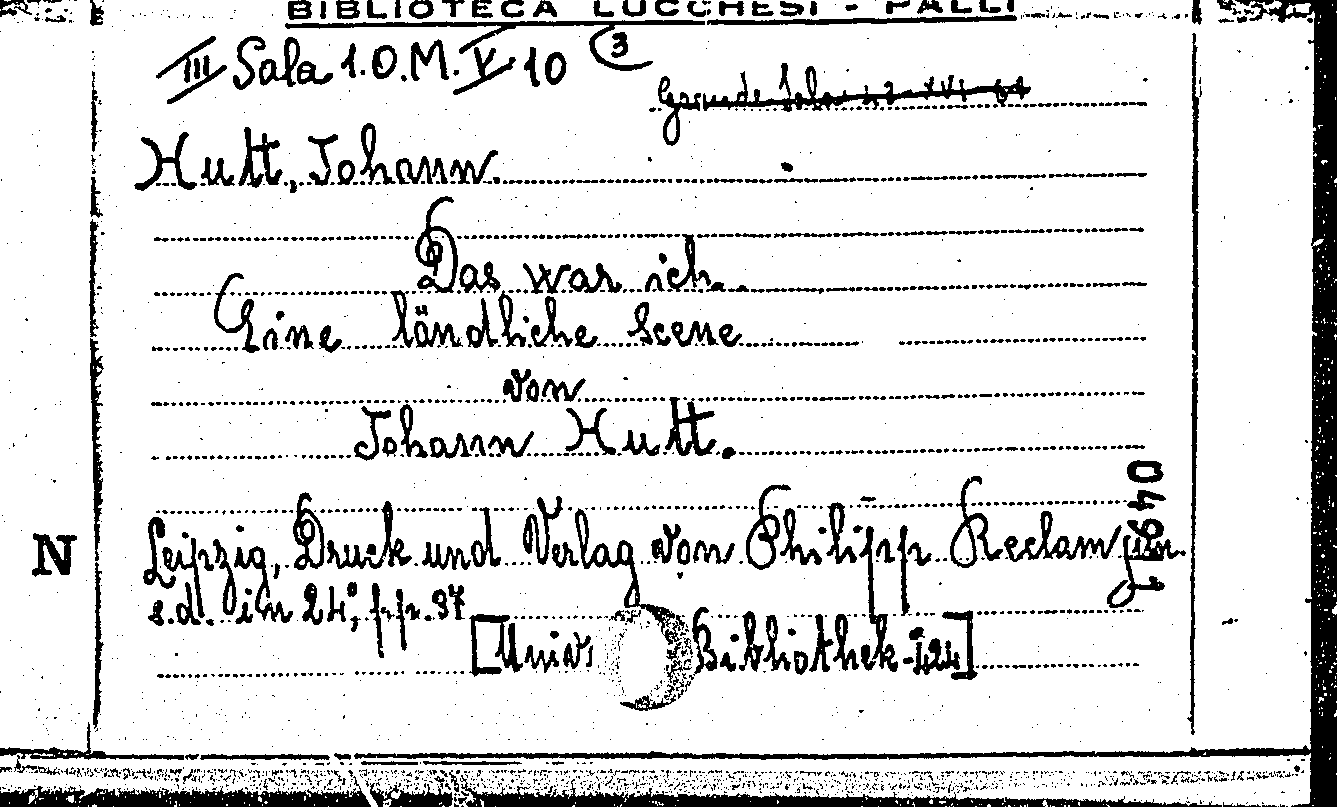 BIBLIOTECA LUCCHESI - PALLI
III Sala 1.O.M.V.10 (3)
Hutt, Johann.
Das war ich.
Eine ländliche Scene
von
Johann Hutt.
Leipzig, Druck und Verlag von Philipp Reclam jun.
s.d. in 24°, pp. 37
[Univ. Bibliothek-424]
N